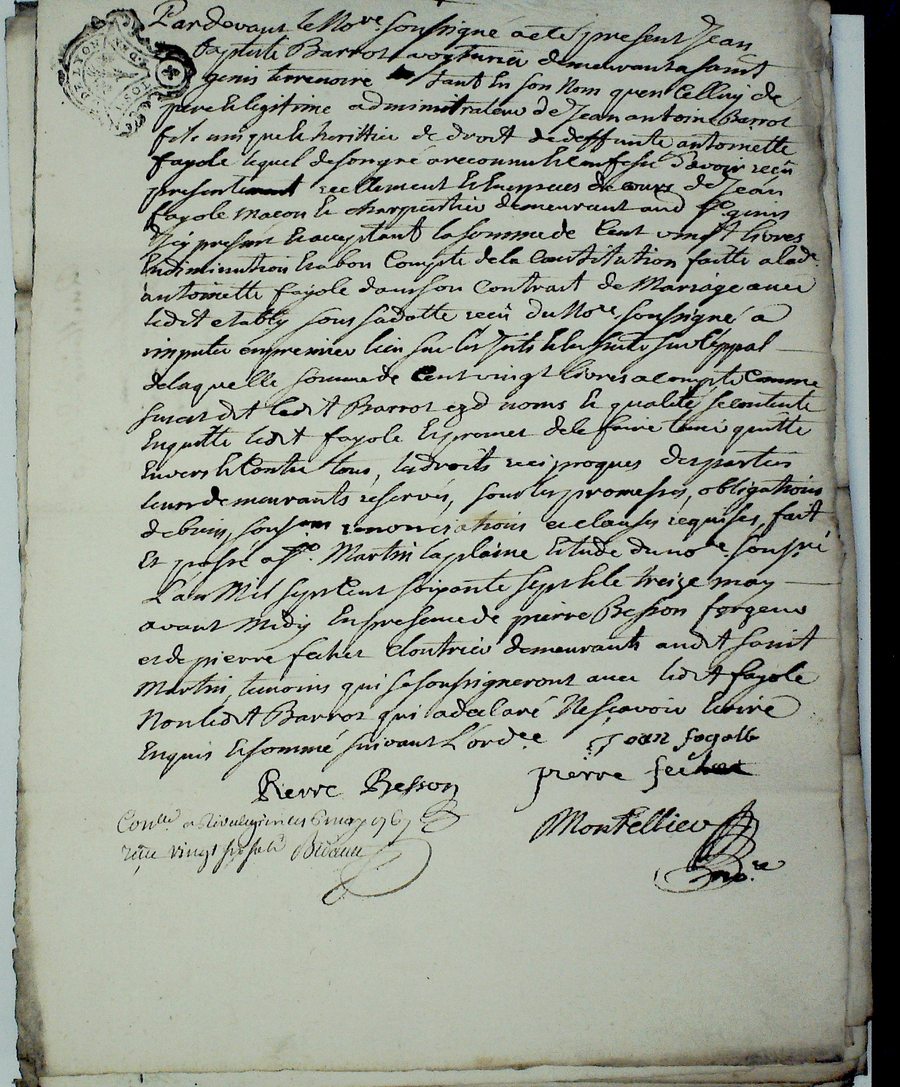 Pardevant le No.re soussigné a eté present Jean
Baptiste Barrot voyturié demeurant a saint
genis terrenoire tant En son Nom qu'en Celluy de
pere et legitime administrateur de Jean antoine Barrot
fils unique et herittier de droit de deffunte antoinette
fayole lequel de son gré a reconnu et confessé d'avoir reçu
presentement reellement Et En especes de cours de Jean
fayole maçon et charpantier demeurant aud. St genis
icy present et acceptant la somme de Cent vingt livres
En diminution et a bon Compte de la Constitution faitte a lade.
antoinette fayole dans son Contrat de Mariage avec
ledit etably sous sa datte reçu du No.re soussigné a
imputer en premier lieu sur les et ensuite sur le ppal
de laquelle somme de Cent vingt livres a compte Comme
sus est dit ledit Barrot ezd. noms et qualité se contente
En quitte ledit fayole Et promet de le faire tenir quitte
Envers et Contre tous, les droits reciproques des parties
leurs demeurants réservés, sous les promesses, obligations
de biens, renonciations et clauses requises, fait
Et passé a St. Martin la plaine Etude du no.re soussigné
L'an Mil sept Cent soixante sept et le treize may
avant Midy En presence de pierre Besson forgeur
et de pierre fechet Cloutrier demeurants audit saint
Martin, temoins qui se soussigneront avec ledit fayole
Non ledit Barrot qui a declaré Ne sçavoir Ecrire
Enquis Et sommé suivant L'ord.ce
Jean fayolle
Pierre Besson pierre fechet
Con.lé a Rivedegier les may 1767 Montellier
reçu vingt six sols no.re